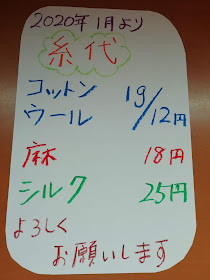 2020年1月より
糸代
コットン 1g/12円
ウール
麻 18円
シルク 25円
よろしく
お願いします